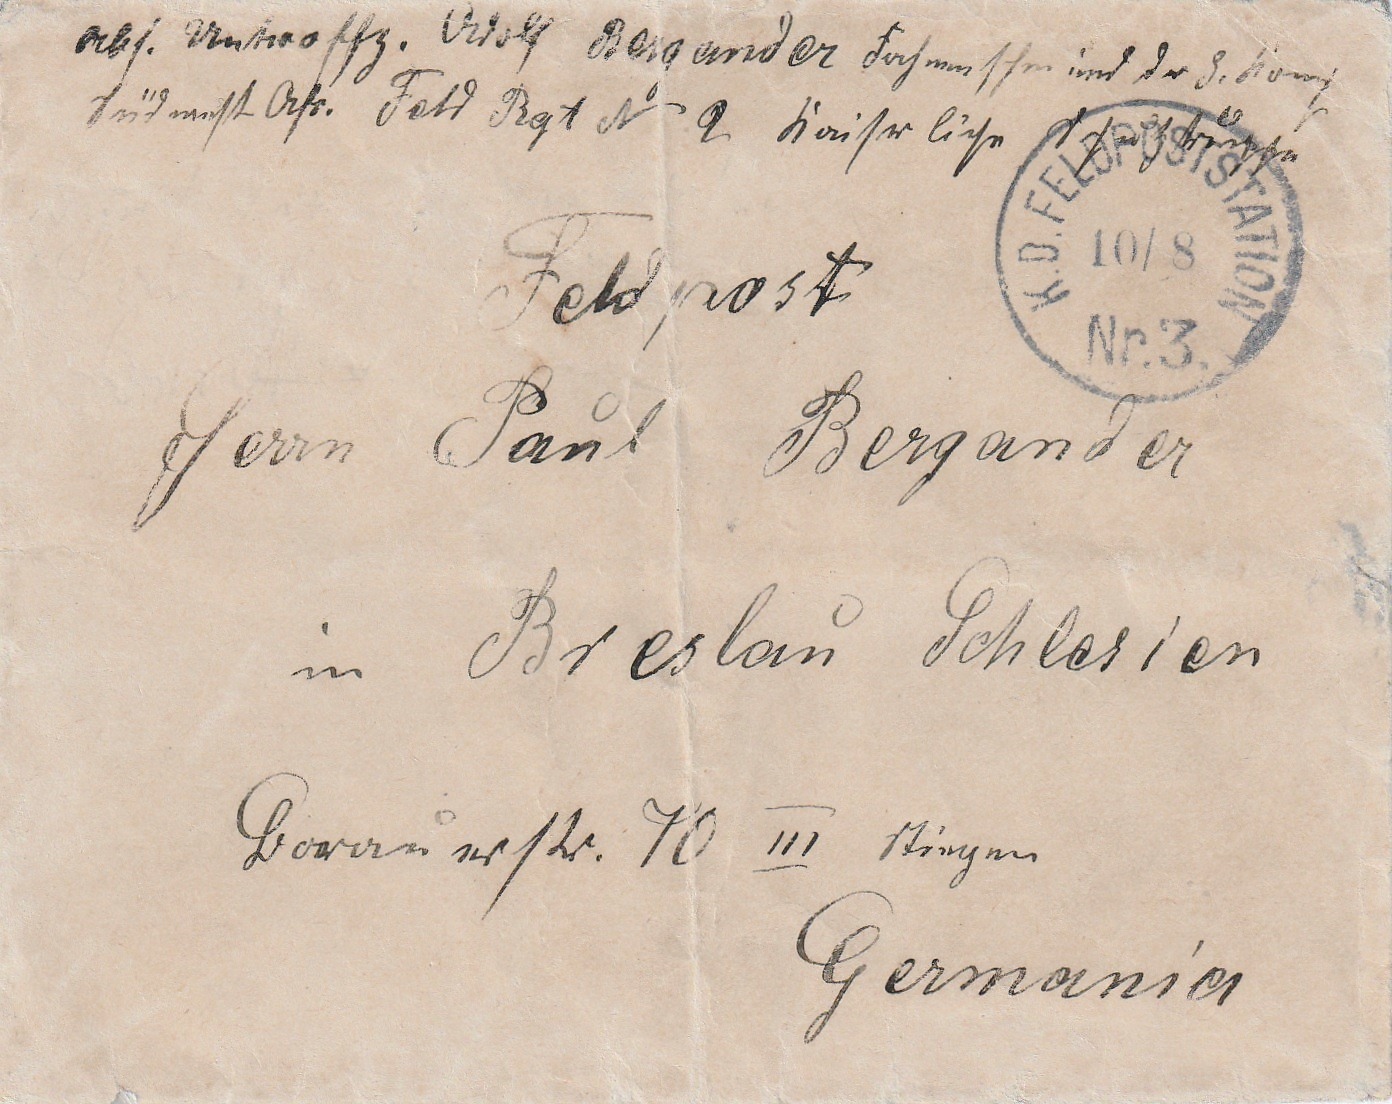 Abs. Unteroffz. Adolf Bergander Fahnenschmied der 8. Komp
Südwest Afr. Feld Rgt No 2 Kaiserliche Schutztruppe
K.D. FELDPOSTSTATION
10/8
Nr. 3.
Feldpost
Herrn Paul Bergander
in Breslau Schlesien
Borauerstr. 70 III Stiegen
Germania